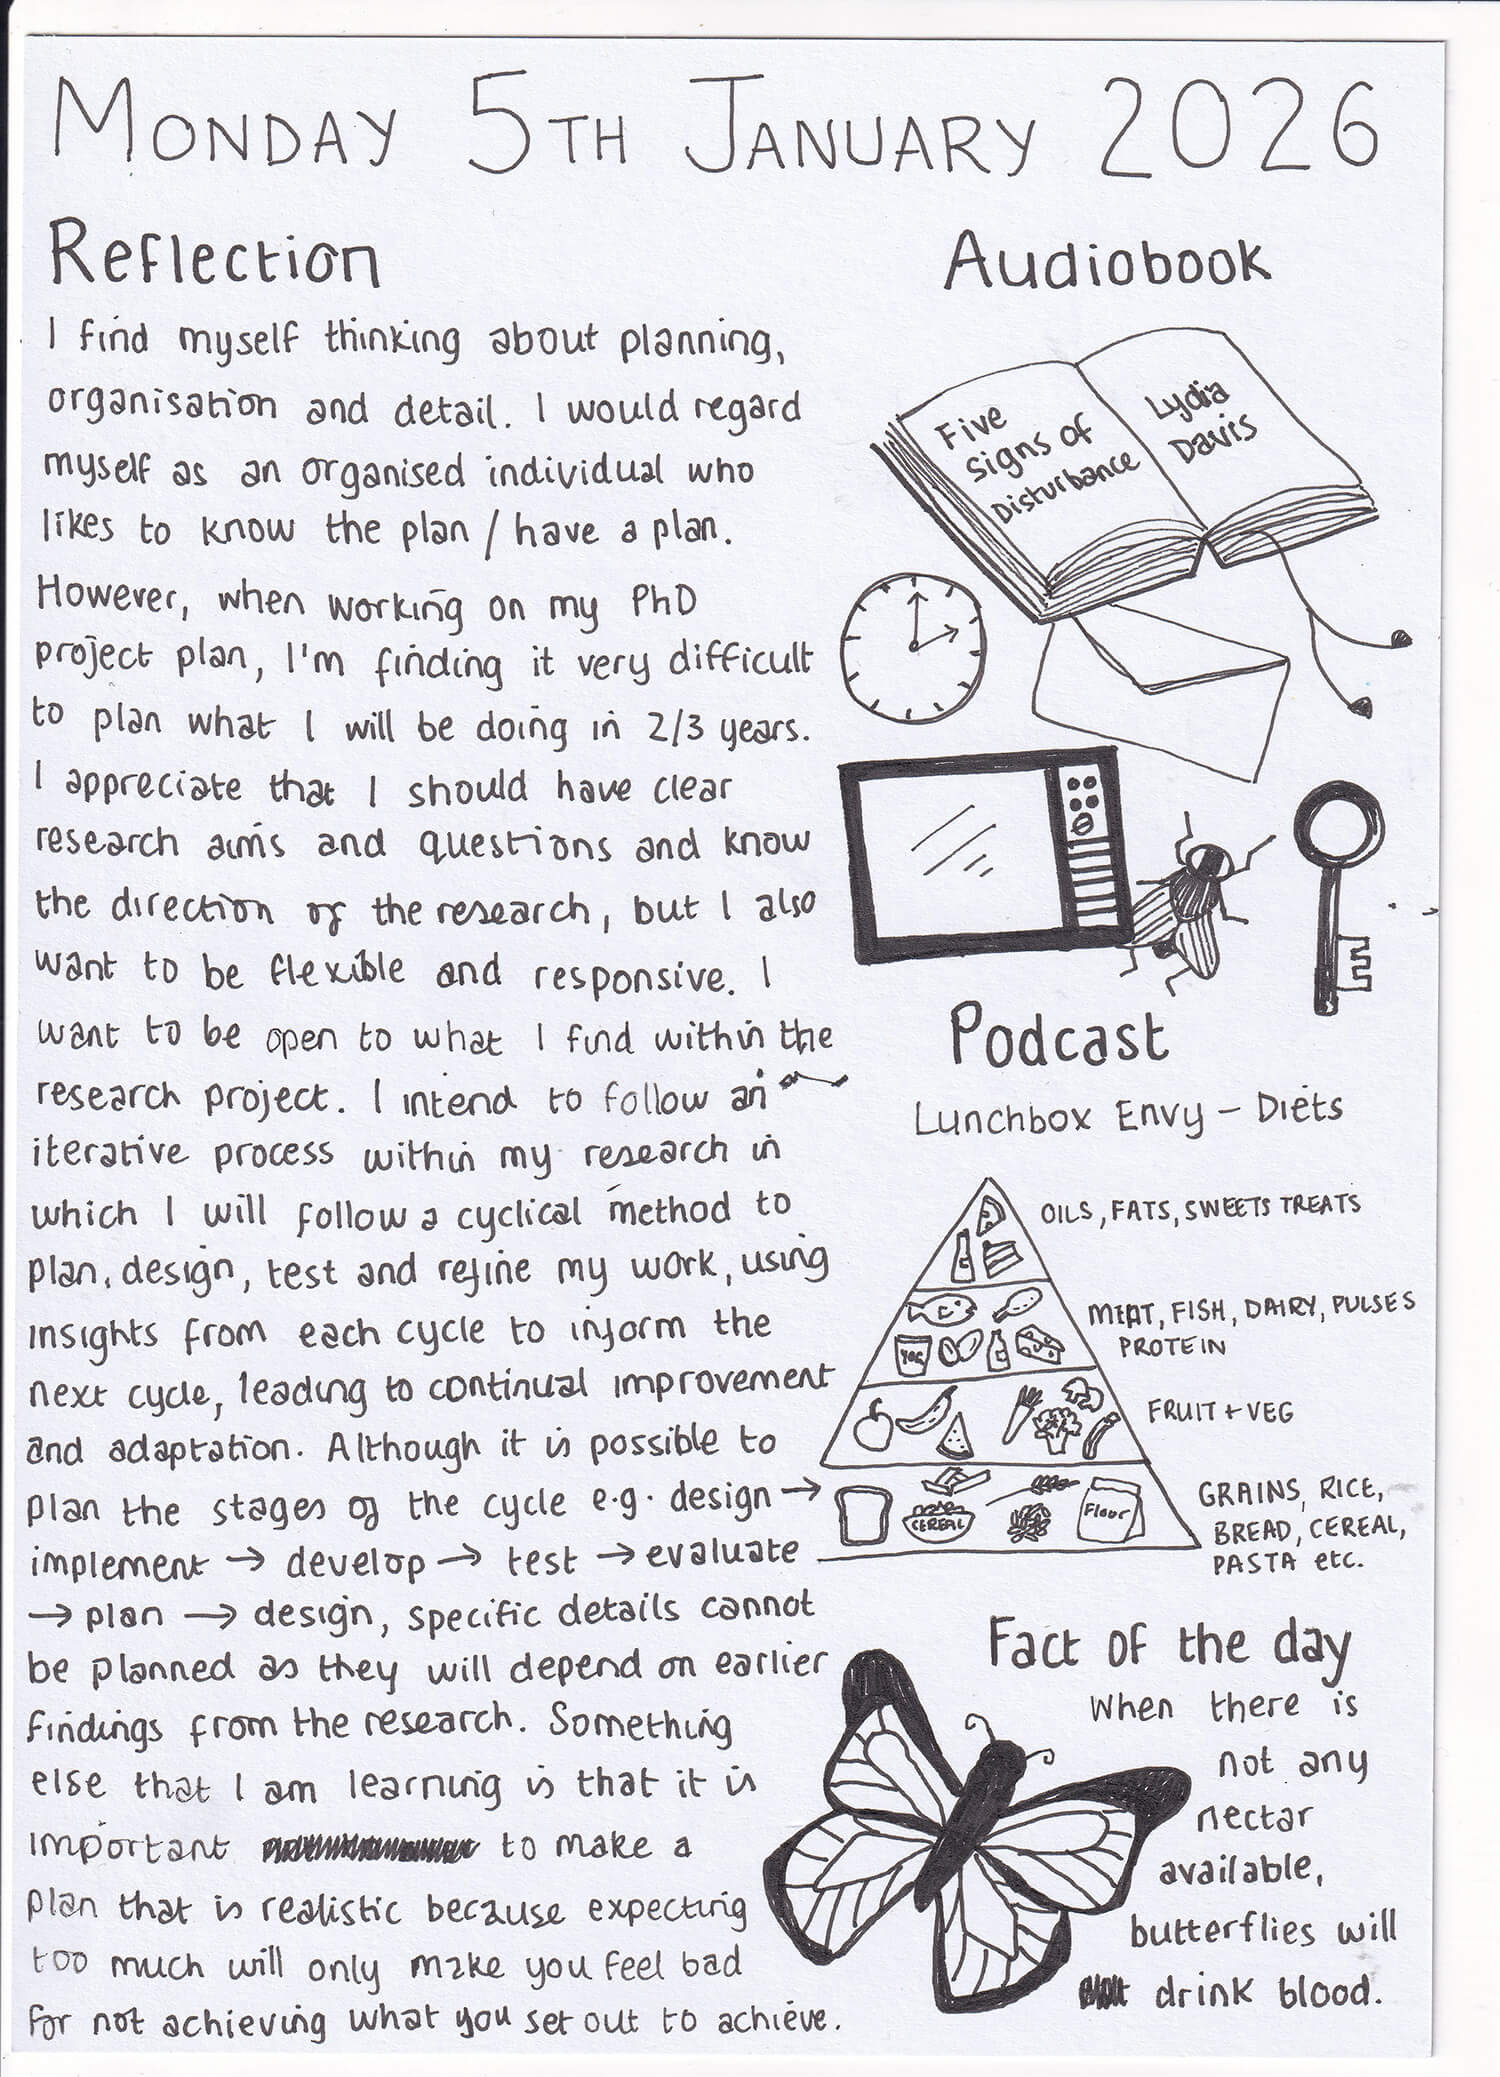 MONDAY 5TH JANUARY 2026
Reflection
I find myself thinking about planning,
organisation and detail. I would regard
myself as an organised individual who
likes to know the plan / have a plan.
However, when working on my PhD
project plan, I'm finding it very difficult
to plan what I will be doing in 2/3 years.
I appreciate that I should have clear
research aims and questions and know
the direction of the research, but I also
want to be flexible and responsive. I
want to be open to what I find within the
research project. I intend to follow an
iterative process within my research in
which I will follow a cyclical method to
plan, design, test and refine my work, using
insights from each cycle to inform the
next cycle, leading to continual improvement
and adaptation. Although it is possible to
plan the stages of the cycle e.g. design →
implement → develop → test → evaluate
→ plan → design, specific details cannot
be planned as they will depend on earlier
findings from the research. Something
else that I am learning is that it is
important to make a
plan that is realistic because expecting
too much will only make you feel bad
for not achieving what you set out to achieve.
Audiobook
Five
Signs of
Disturbance
Lydia
Davis
Podcast
Lunchbox Envy – Diets
OILS, FATS, SWEETS TREATS
MEAT, FISH, DAIRY, PULSES
PROTEIN
YOG
FRUIT + VEG
GRAINS, RICE,
BREAD, CEREAL,
PASTA etc.
CEREAL
Flour
Fact of the day
When there is
not any
nectar
available,
butterflies will
drink blood.